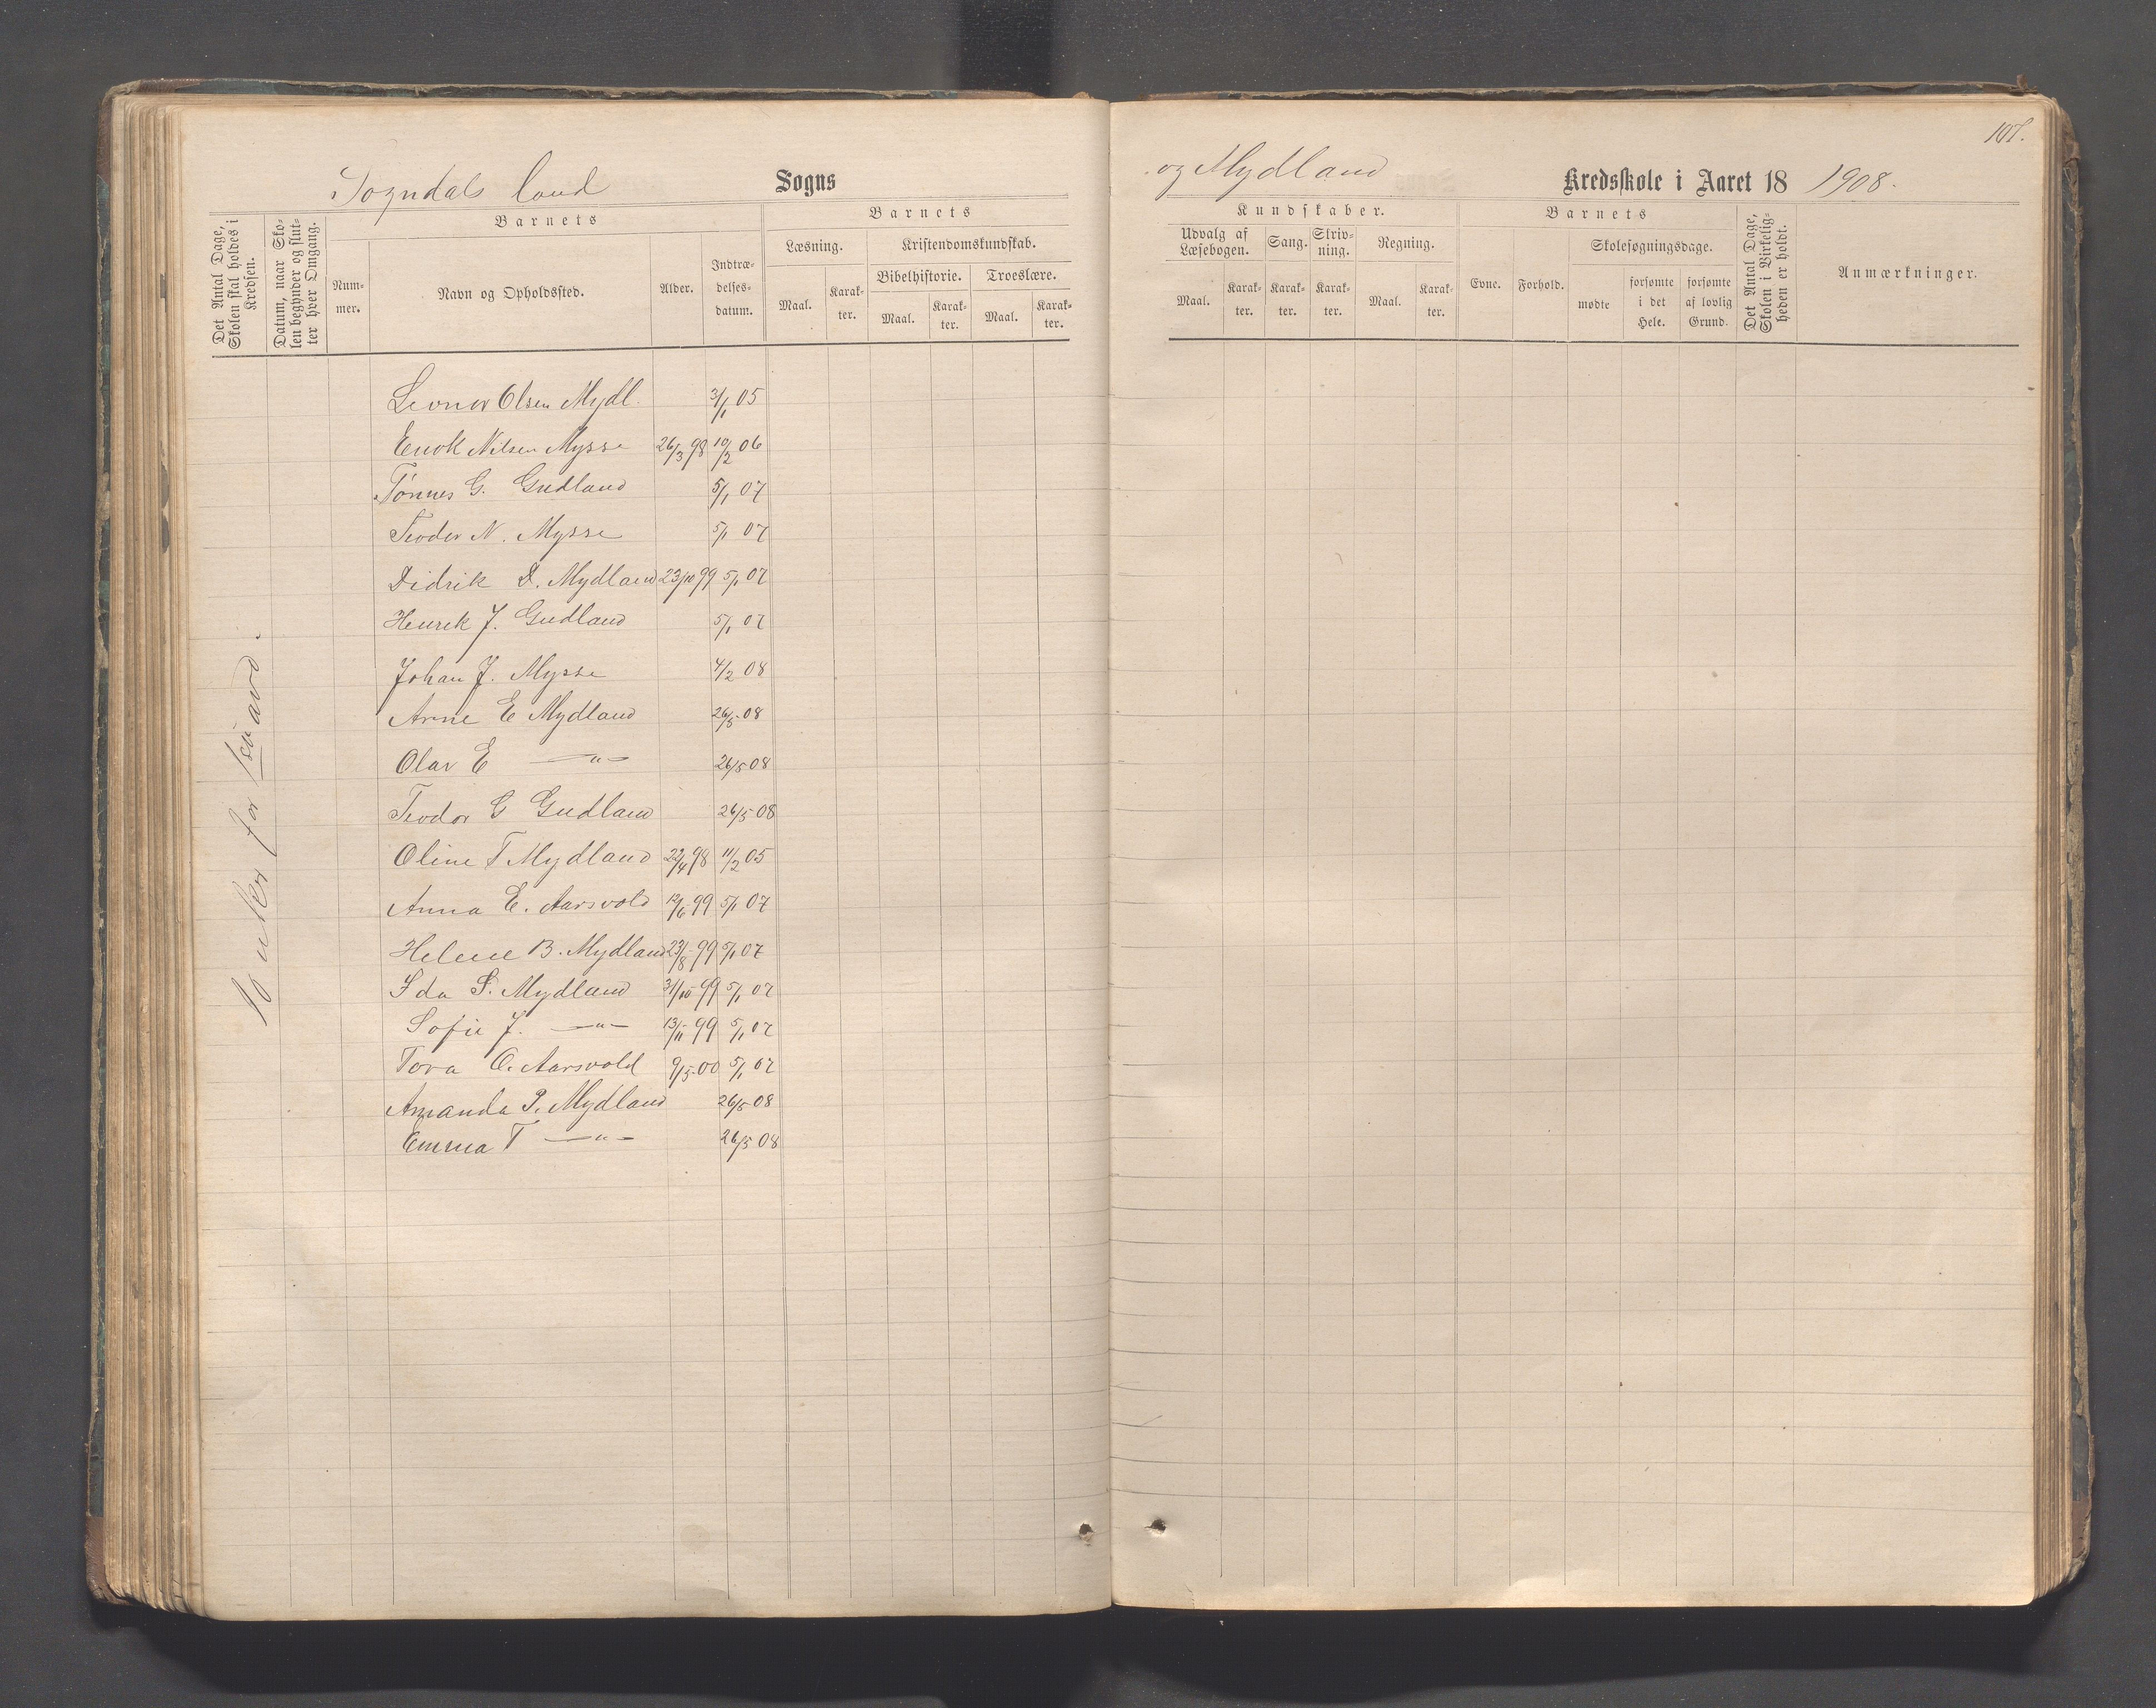 107.
Sogndals land Sogns
og Mydland Kredsskole i Aaret 18 1908.
Det Antal Dage, Skolen skal holdes i Kredsen.
Datum, naar Skolen begynder og slutter hver Omgang.
Barnets
Nummer.
Navn og Opholdssted.
Alder.
Indtrædelsesdatum.
Barnets
Læsning.
Maal.
Karakter.
Kristendomskundskab.
Bibelhistorie.
Maal.
Karakter.
Troeslære.
Maal.
Karakter.
Kundskaber.
Udvalg af Læsebogen.
Maal.
Karakter.
Sang.
Karakter.
Skrivning.
Karakter.
Regning.
Maal.
Karakter.
Barnets
Evne.
Forhold.
Skolesøgningsdage.
mødte
forsømte i det Hele.
forsømte af lovlig Grund.
Det Antal Dage, Skolen i Virkeligheden er holdt.
Anmærkninger.
Leonor Olsen Mydl. 3/1 05
Enok Nilsen Mysse 26/3 98 10/2 06
Tönnes G. Gudland 5/1 07
Teodor N. Mysse 5/1 07
Didrik D. Mydland 23/10 99 5/1 07
Henrek J. Gudland 5/1 07
Johan J. Mysse 4/2 08
Arne E Mydland 26/5 08
Olav E —"— 26/5 08
Teodor G Gudland 26/5 08
Oline T Mydland 22/4 98 11/2 05
Anna E. Aarsvold 12/6 99 5/1 07
Helene B. Mydland 23/8 99 5/1 07
Ida S. Mydland 31/10 99 5/1 07
Sofie J. —"— 13/11 99 5/1 07
Tora O. Aarsvold 9/5 00 5/1 07
Amanda P. Mydland 26/5 08
Emma T —"— 26/5 08
uker for